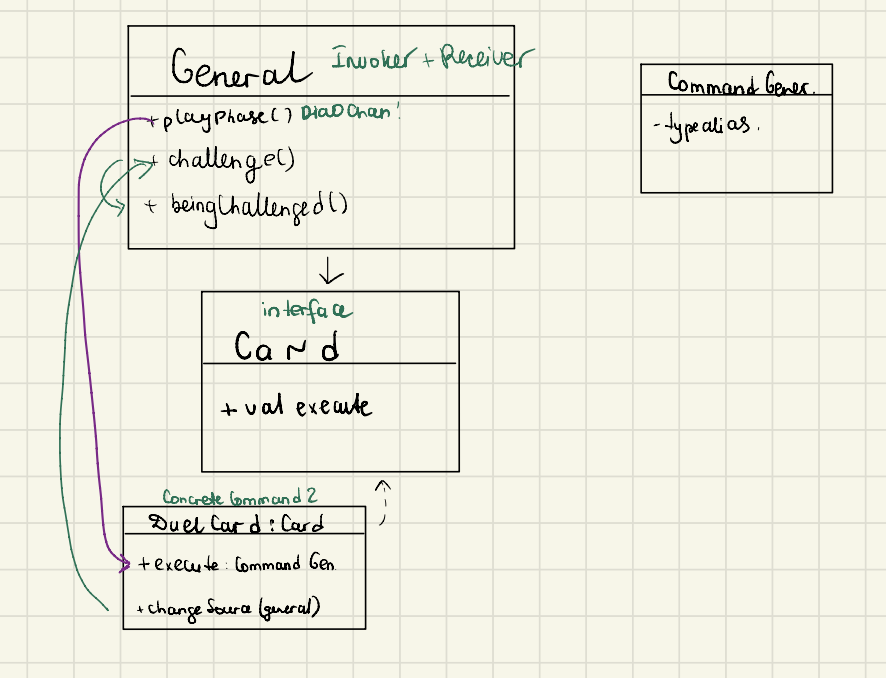 General Invoker + Receiver
+ playPhase() DiaoChan!
+ challenge()
+ beingChallenged()
Command Gener.
- typealias.
interface
Card
+ val execute
Concrete Command 2
Duel Card : Card
+ execute : Command Gen
+ change Source (general)